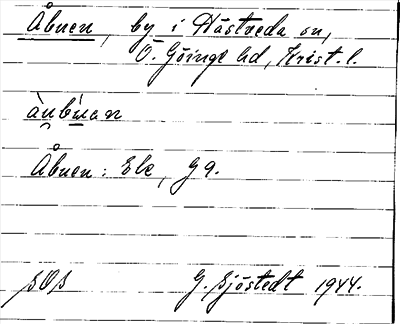 Åbuen, by i Hästveda sn,
Ö. Göinge hd, Krist. l.
Åbuen: Ele, G 9.
SOS G. Sjöstedt 1944.